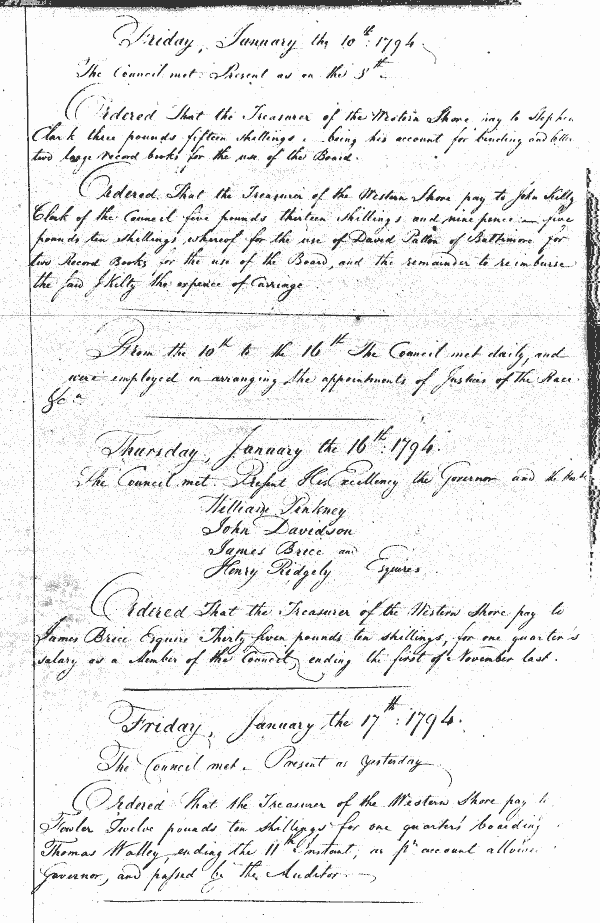 Friday, January the 10th: 1794
The Council met. Present as on the 8th
Ordered That the Treasurer of the Western Shore pay to Stephen
Clark three pounds fifteen shillings, being his account for binding and
two large record books for the use of the Board.
Ordered That the Treasurer of the Western Shore pay to John Kilty
Clerk of the Council five pounds thirteen shillings and nine pence — five
pounds ten shillings whereof for the use of David Patton of Baltimore for
two Record Books for the use of the Board, and the remainder to reimburse
the said J Kilty the expence of Carriage
From the 10th to the 16th The Council met daily, and
were employed in arranging the appointments of Justices of the Peace
&ca
Thursday, January the 16th: 1794.
The Council met Present His Excellency the Governor and the
William Pinkney
John Davidson
James Brice and
Henry Ridgely Esquires
Ordered That the Treasurer of the Western Shore pay to
James Brice Esquire Thirty seven pounds ten shillings, for one quarter's
salary as a Member of the Council, ending the first of November last.
Friday, January the 17th: 1794.
The Council met. Present as yesterday
Ordered That the Treasurer of the Western Shore pay to
Fowler Twelve pounds ten shillings for one quarter's boarding
Thomas Walley, ending the 11th Instant, as pr account
Governor, and passed by the Auditor.